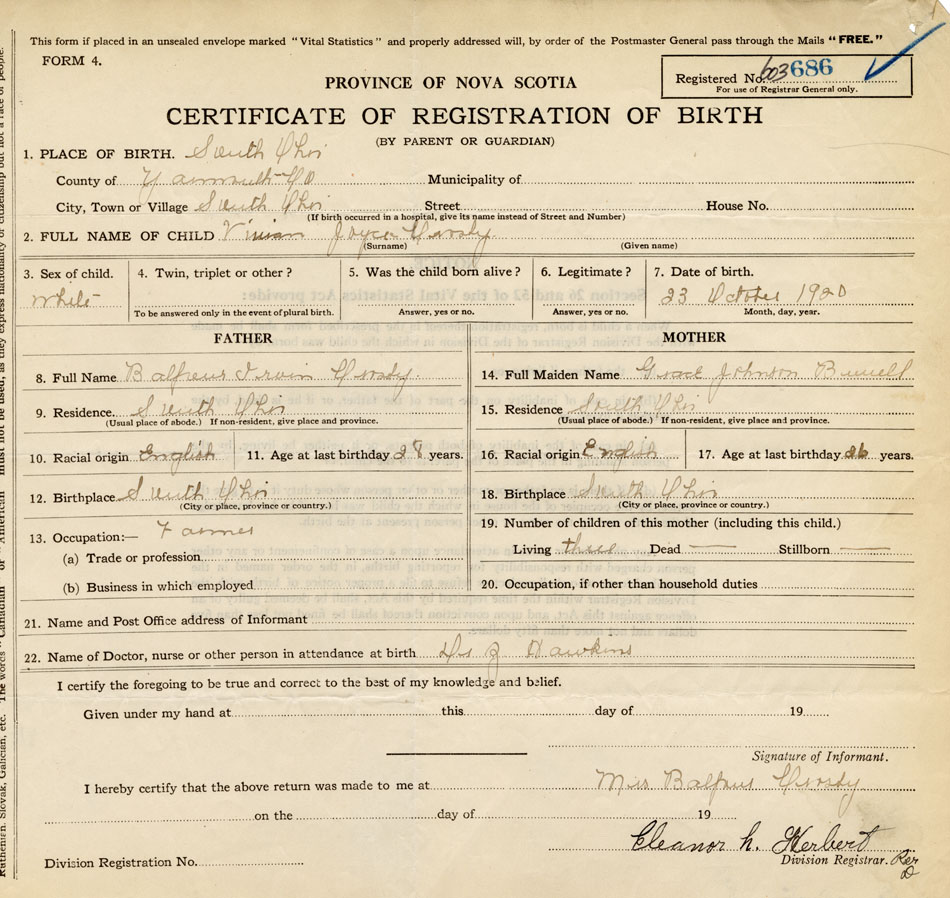 This form if placed in an unsealed envelope marked "Vital Statistics" and properly addressed will, by order of the Postmaster General pass through the Mails "FREE."
FORM 4.
Registered No. 603686
For use of Registrar General only.
PROVINCE OF NOVA SCOTIA
CERTIFICATE OF REGISTRATION OF BIRTH
(BY PARENT OR GUARDIAN)
1. PLACE OF BIRTH. South Ohio
County of Yarmouth Co Municipality of
City, Town or Village South Ohio Street House No.
(If birth occurred in a hospital, give its name instead of Street and Number)
2. FULL NAME OF CHILD Vivian Joyce Crosby
(Surname) (Given name)
3. Sex of child. 4. Twin, triplet or other? 5. Was the child born alive? 6. Legitimate? 7. Date of birth.
white 23 October 1920
To be answered only in the event of plural birth. Answer, yes or no. Answer, yes or no. Month, day, year.
FATHER MOTHER
8. Full Name Balfour Irvin Crosby 14. Full Maiden Name Grace Johnson
9. Residence. South Ohio 15. Residence South Ohio
(Usual place of abode.) If non-resident, give place and province. (Usual place of abode.) If non-resident, give place and province.
10. Racial origin English 11. Age at last birthday 28 years. 16. Racial origin English 17. Age at last birthday 26 years.
12. Birthplace South Ohio 18. Birthplace South Ohio
(City or place, province or country.) (City or place, province or country.)
13. Occupation:— Farmer 19. Number of children of this mother (including this child.)
(a) Trade or profession Living three Dead — Stillborn —
(b) Business in which employed 20. Occupation, if other than household duties
21. Name and Post Office address of Informant
22. Name of Doctor, nurse or other person in attendance at birth Hawkins
I certify the foregoing to be true and correct to the best of my knowledge and belief.
Given under my hand at this day of 19
Signature of Informant.
I hereby certify that the above return was made to me at Mrs Balfour Crosby
on the day of 19
Eleanor h. Herbert
Division Registration No. Division Registrar.